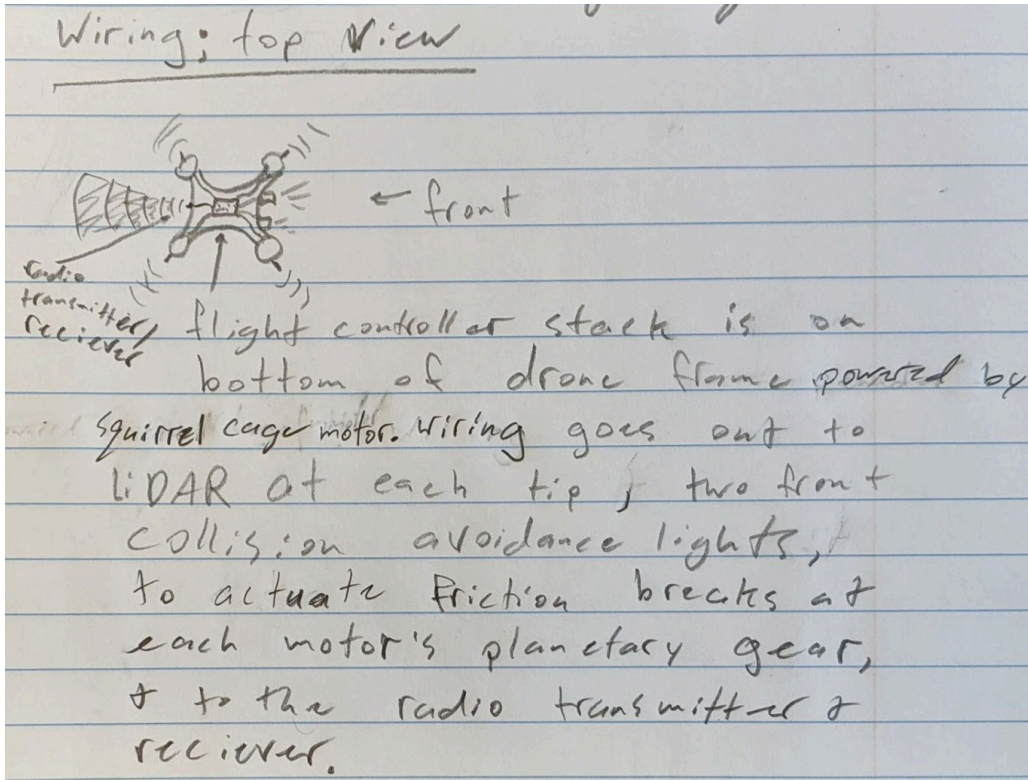 Wiring; top view
← front
radio
transmitter/
reciever
flight controller stack is on
bottom of drone frame powered by
squirrel cage motor. Wiring goes out to
LiDAR at each tip, two front
collision avoidance lights,
to actuate friction breaks at
each motor's planetary gear,
& to the radio transmitter &
reciever.